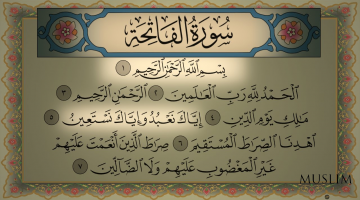 سُورَةُ الْفَاتِحَةِ
بِسْمِ اللَّهِ الرَّحْمَٰنِ الرَّحِيمِ ١
الْحَمْدُ لِلَّهِ رَبِّ الْعَالَمِينَ ٢ الرَّحْمَٰنِ الرَّحِيمِ ٣
مَالِكِ يَوْمِ الدِّينِ ٤ إِيَّاكَ نَعْبُدُ وَإِيَّاكَ نَسْتَعِينُ ٥
اهْدِنَا الصِّرَاطَ الْمُسْتَقِيمَ ٦ صِرَاطَ الَّذِينَ أَنْعَمْتَ عَلَيْهِمْ
غَيْرِ الْمَغْضُوبِ عَلَيْهِمْ وَلَا الضَّالِّينَ ٧
MUSLIM